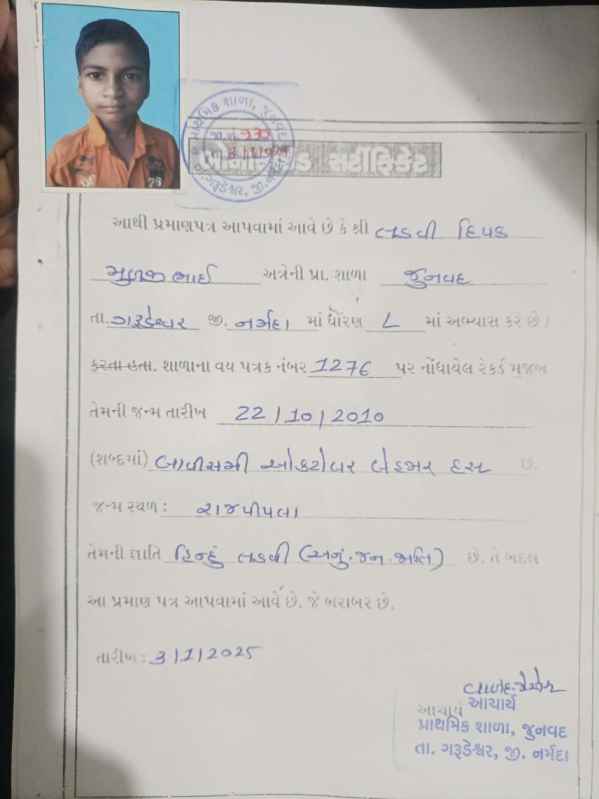 પ્રાથમિક શાળા, જુનવદ
જા.નં. 132
તા. ગરૂડેશ્વર, જી.
બોનાફાઈડ સર્ટીફિકેટ
આથી પ્રમાણપત્ર આપવામાં આવે છે કે શ્રી તડવી દિપક
અત્રેની પ્રા. શાળા જુનવદ
તા. ગરૂડેશ્વર જી. નર્મદા માં ધોરણ ૮ માં અભ્યાસ કરે છે /
કરતા હતા. શાળાના વય પત્રક નંબર 1276 પર નોંધાયેલ રેકર્ડ મુજબ
તેમની જન્મ તારીખ 22/10/2010
(શબ્દમાં) બાવીસમી ઓક્ટોબર બે હજાર દસ છે.
જન્મ સ્થળ : રાજપીપલા
તેમની જ્ઞાતિ હિન્દુ તડવી (અનુ. જન. જાતિ) છે. તે બદલ
આ પ્રમાણ પત્ર આપવામાં આવે છે. જે બરાબર છે.
તારીખ : 3/1/2025
આચાર્ય
આચાર્ય
પ્રાથમિક શાળા, જુનવદ
તા. ગરૂડેશ્વર, જી. નર્મદા